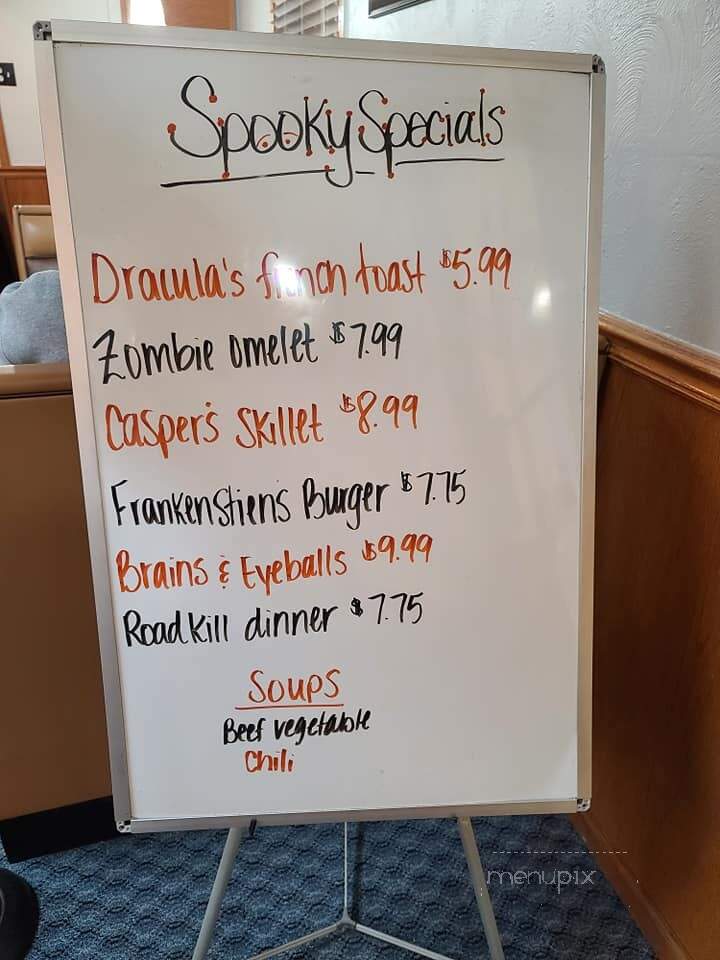 Spooky Specials
Dracula's french toast $5.99
Zombie omelet $7.99
Casper's Skillet $8.99
Frankenstiens Burger $7.75
Brains & Eyeballs $9.99
Roadkill dinner $7.75
Soups
Beef vegetable
Chili
menupix